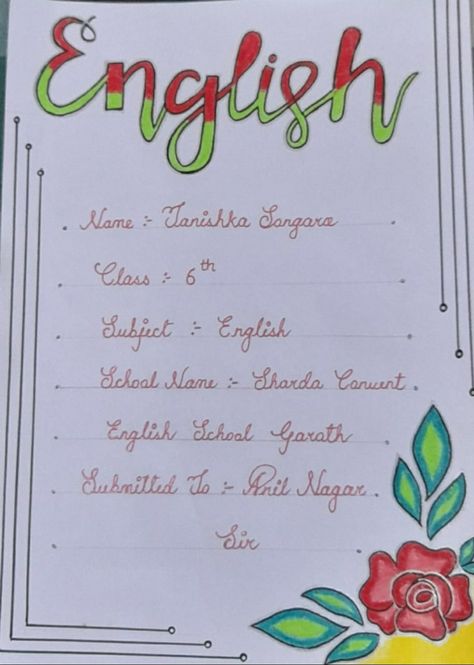 English
Name :- Tanishka Sangara
Class :- 6th
Subject :- English
School Name :- Sharda Convent
English School Garath
Submitted To :- Anil Nagar
Sir